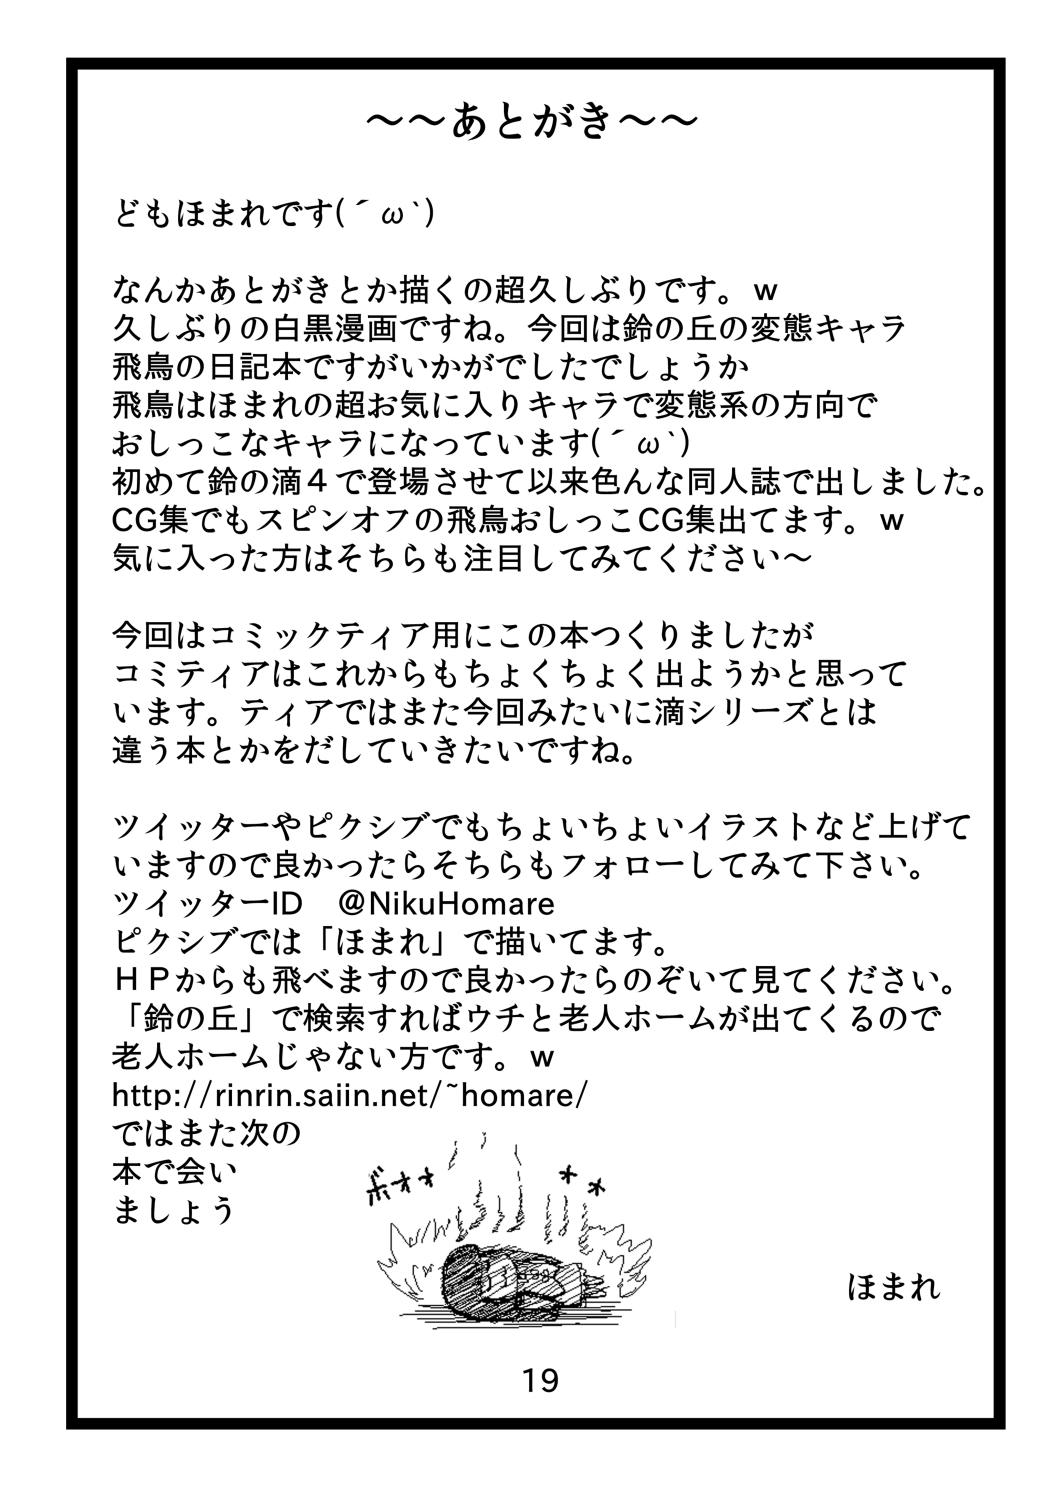 ～～あとがき～～
どもほまれです(´ω`)
なんかあとがきとか描くの超久しぶりです。w
久しぶりの白黒漫画ですね。今回は鈴の丘の変態キャラ
飛鳥の日記本ですがいかがでしたでしょうか
飛鳥はほまれの超お気に入りキャラで変態系の方向で
おしっこなキャラになっています(´ω`)
初めて鈴の滴４で登場させて以来色んな同人誌で出しました。
CG集でもスピンオフの飛鳥おしっこCG集出てます。w
気に入った方はそちらも注目してみてください～
今回はコミックティア用にこの本つくりましたが
コミティアはこれからもちょくちょく出ようかと思って
います。ティアではまた今回みたいに滴シリーズとは
違う本とかをだしていきたいですね。
ツイッターやピクシブでもちょいちょいイラストなど上げて
いますので良かったらそちらもフォローしてみて下さい。
ツイッターID　@NikuHomare
ピクシブでは「ほまれ」で描いてます。
ＨＰからも飛べますので良かったらのぞいて見てください。
「鈴の丘」で検索すればウチと老人ホームが出てくるので
老人ホームじゃない方です。w
http://rinrin.saiin.net/~homare/
ではまた次の
本で会い
ましょう
ボオオ
オオ
ほまれ
19